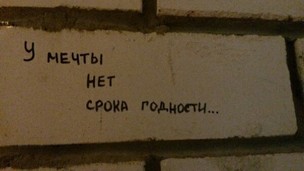 У МЕЧТЫ
НЕТ
СРОКА ГОДНОСТИ...